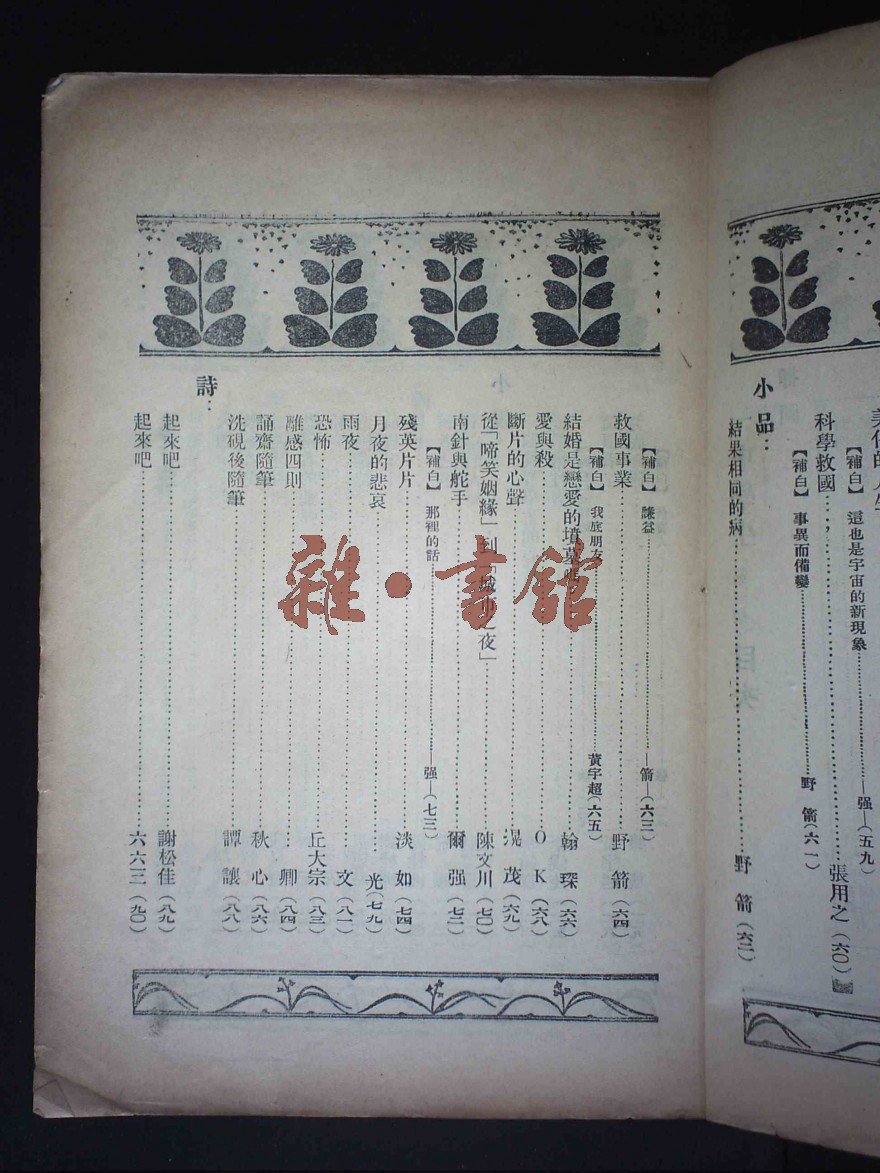 科學救國 張用之(六〇)
【補白】 事異而備變 野箭(六一)
【補白】 這也是宇宙的新現象 强(五九)
小品:
結果相同的病 野箭(六二)
【補白】 謙益 箭(六三)
救國事業 野箭(六四)
【補白】 我底朋友 黃宇超(六五)
結婚是戀愛的墳墓嗎 翰琛(六六)
愛與殺 OK(六八)
斷片的心聲 滉茂(六九)
從「啼笑姻緣」到「城 之夜」 陳文川(七〇)
南針與舵手 爾强(七二)
【補白】 那裡的話 强(七三)
殘英片片 淡如(七四)
月夜的悲哀 光(七九)
雨夜 文(八一)
恐怖 丘大宗(八三)
雜感四則 卿(八四)
誦齋隨筆 秋心(八六)
洗硯後隨筆 譚讓(八八)
詩:
起來吧 謝松佳(八九)
起來吧 六六三(九〇)
雜·書館